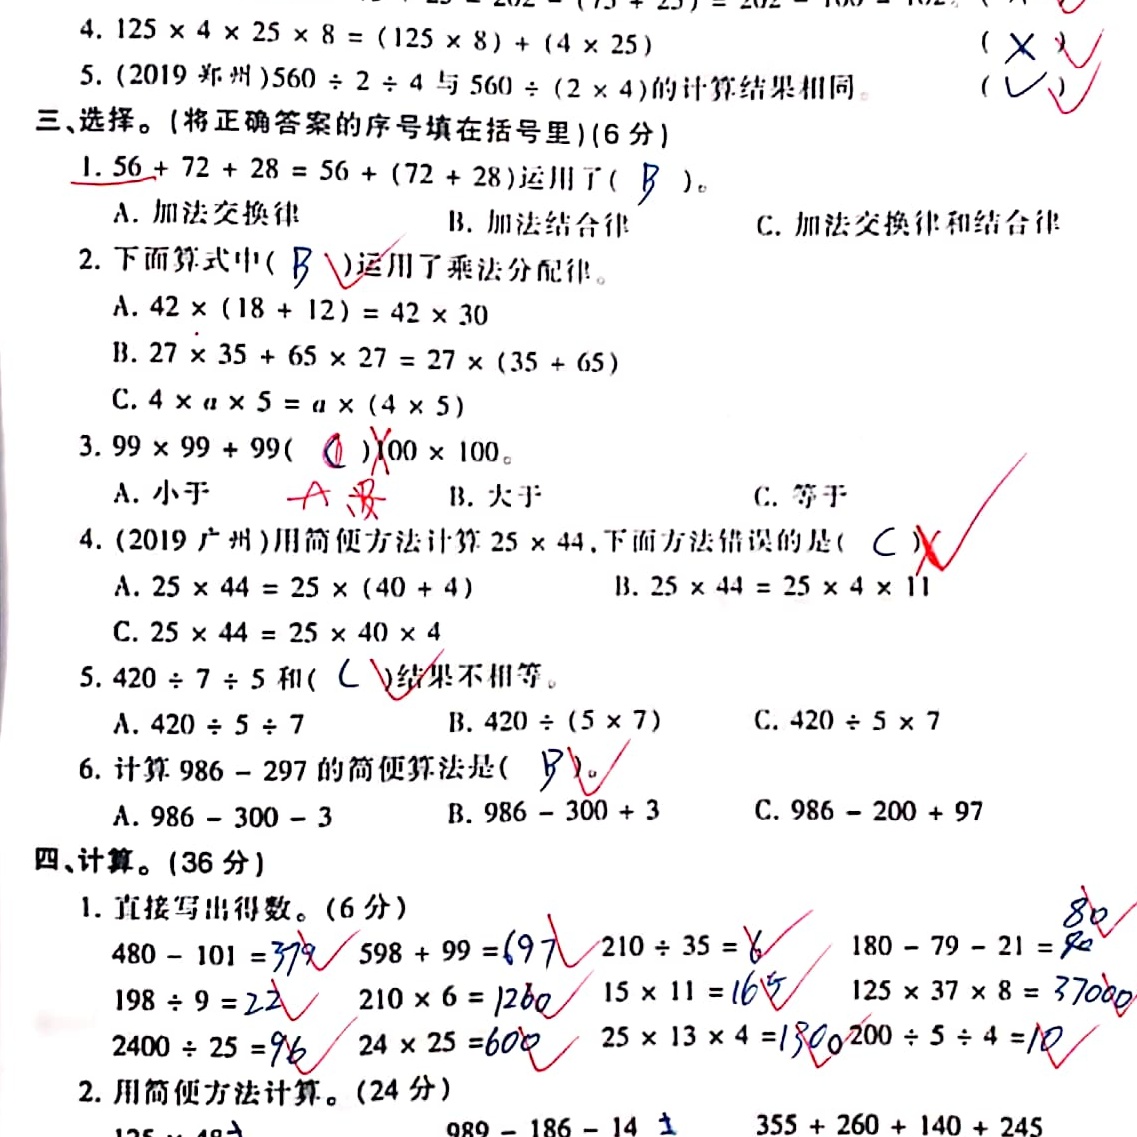 4. 125 × 4 × 25 × 8 = (125 × 8) + (4 × 25) ( X )
5. (2019 郑州)560 ÷ 2 ÷ 4 与 560 ÷ (2 × 4)的计算结果相同。 ( ✓ )
三、选择。(将正确答案的序号填在括号里)(6 分)
1. 56 + 72 + 28 = 56 + (72 + 28)运用了( B )。
A. 加法交换律 B. 加法结合律 C. 加法交换律和结合律
2. 下面算式中( B )运用了乘法分配律。
A. 42 × (18 + 12) = 42 × 30
B. 27 × 35 + 65 × 27 = 27 × (35 + 65)
C. 4 × a × 5 = a × (4 × 5)
3. 99 × 99 + 99( )100 × 100。
A. 小于 B. 大于 C. 等于
A
4. (2019 广州)用简便方法计算 25 × 44,下面方法错误的是( C )
A. 25 × 44 = 25 × (40 + 4) B. 25 × 44 = 25 × 4 × 11
C. 25 × 44 = 25 × 40 × 4
5. 420 ÷ 7 ÷ 5 和( C )结果不相等。
A. 420 ÷ 5 ÷ 7 B. 420 ÷ (5 × 7) C. 420 ÷ 5 × 7
6. 计算 986 - 297 的简便算法是( B )。
A. 986 - 300 - 3 B. 986 - 300 + 3 C. 986 - 200 + 97
四、计算。(36 分)
1. 直接写出得数。(6 分)
80
480 - 101 = 379 598 + 99 = 697 210 ÷ 35 = 6 180 - 79 - 21 =
198 ÷ 9 = 22 210 × 6 = 1260 15 × 11 = 165 125 × 37 × 8 = 37000
2400 ÷ 25 = 96 24 × 25 = 600 25 × 13 × 4 = 1300 200 ÷ 5 ÷ 4 = 10
2. 用简便方法计算。(24 分)
989 - 186 - 14 355 + 260 + 140 + 245